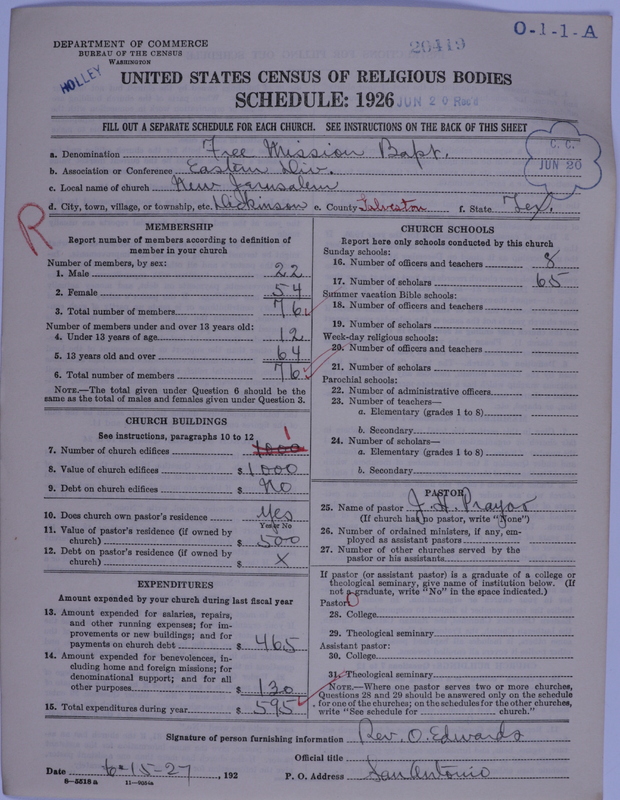 O-1-1-A
DEPARTMENT OF COMMERCE
BUREAU OF THE CENSUS
WASHINGTON
26419
HOLLEY
UNITED STATES CENSUS OF RELIGIOUS BODIES
SCHEDULE: 1926
JUN 20 Rec'd
FILL OUT A SEPARATE SCHEDULE FOR EACH CHURCH. SEE INSTRUCTIONS ON THE BACK OF THIS SHEET
C. C.
JUN 20
a. Denomination Free Mission Bapt.
b. Association or Conference Eastern Div.
c. Local name of church New Jerusalem
d. City, town, village, or township, etc. Dickinson e. County Galveston f. State Tex.
R
MEMBERSHIP
Report number of members according to definition of
member in your church
Number of members, by sex:
1. Male 22
2. Female 54
3. Total number of members 76
Number of members under and over 13 years old:
4. Under 13 years of age 12
5. 13 years old and over 64
6. Total number of members 76
NOTE.—The total given under Question 6 should be the
same as the total of males and females given under Question 3.
CHURCH BUILDINGS
See instructions, paragraphs 10 to 12
1
7. Number of church edifices 1000
8. Value of church edifices $ 1000
9. Debt on church edifices $ No
10. Does church own pastor's residence Yes
Yes or No
11. Value of pastor's residence (if owned by
church) $ 500
12. Debt on pastor's residence (if owned by
church) $ X
EXPENDITURES
Amount expended by your church during last fiscal year
13. Amount expended for salaries, repairs,
and other running expenses; for im-
provements or new buildings; and for
payments on church debt $ 465
14. Amount expended for benevolences, in-
cluding home and foreign missions; for
denominational support; and for all
other purposes $ 130
15. Total expenditures during year $ 595
CHURCH SCHOOLS
Report here only schools conducted by this church
Sunday schools:
16. Number of officers and teachers 8
17. Number of scholars 65
Summer vacation Bible schools:
18. Number of officers and teachers
19. Number of scholars
Week-day religious schools:
20. Number of officers and teachers
21. Number of scholars
Parochial schools:
22. Number of administrative officers
23. Number of teachers—
a. Elementary (grades 1 to 8)
b. Secondary
24. Number of scholars—
a. Elementary (grades 1 to 8)
b. Secondary
PASTOR
25. Name of pastor J. H. Prayor
(If church has no pastor, write "None")
26. Number of ordained ministers, if any, em-
ployed as assistant pastors
27. Number of other churches served by the
pastor or his assistants
If pastor (or assistant pastor) is a graduate of a college or
theological seminary, give name of institution below. (If
not a graduate, write "No" in the space indicated.)
Pastor: 0
28. College
29. Theological seminary
Assistant pastor:
30. College
31. Theological seminary
NOTE.—Where one pastor serves two or more churches,
Questions 28 and 29 should be answered only on the schedule
for one of the churches; on the schedules for the other churches,
write "See schedule for church."
Signature of person furnishing information Rev. O. Edwards
Official title
Date 6-15-27, 192 P. O. Address San Antonio
8-5518 a 11-9054a